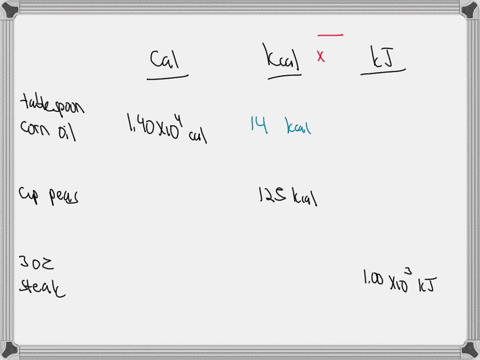 Cal kcal x kJ
tablespoon
corn oil 1.40x10⁴ cal 14 kcal
cup peas 125 kcal
3 oz
steak 1.00 x10³ kJ